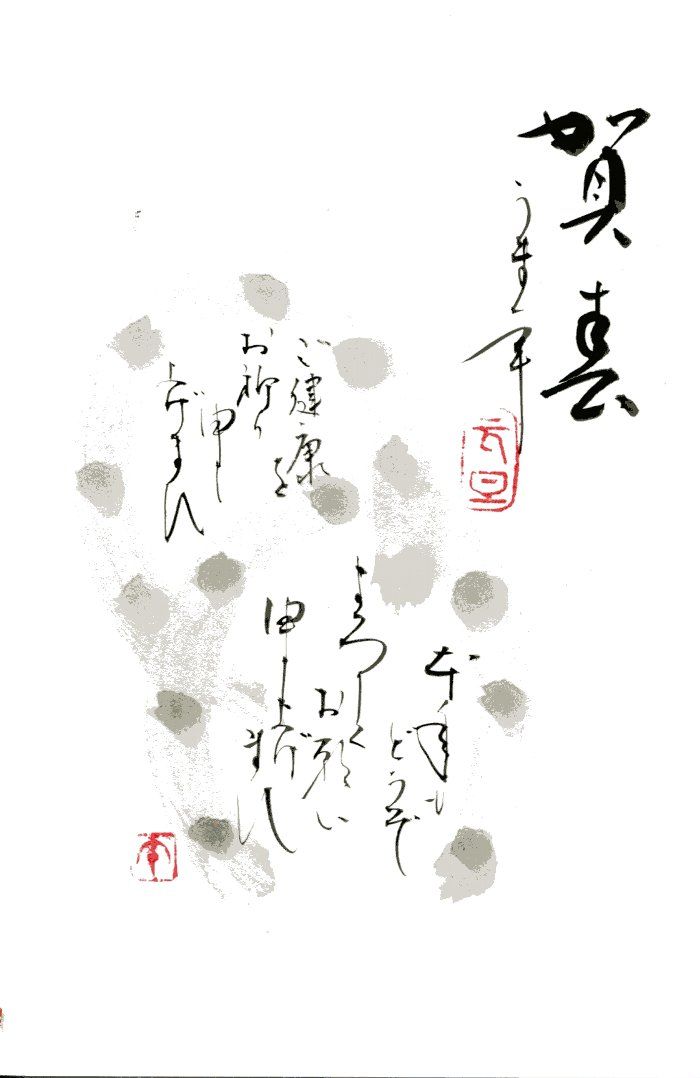 賀春
うま年
元旦
本年も
どうぞ
よろしく
お願い
申し上げ
ます
ご健康を
お祈り
申し
上げます